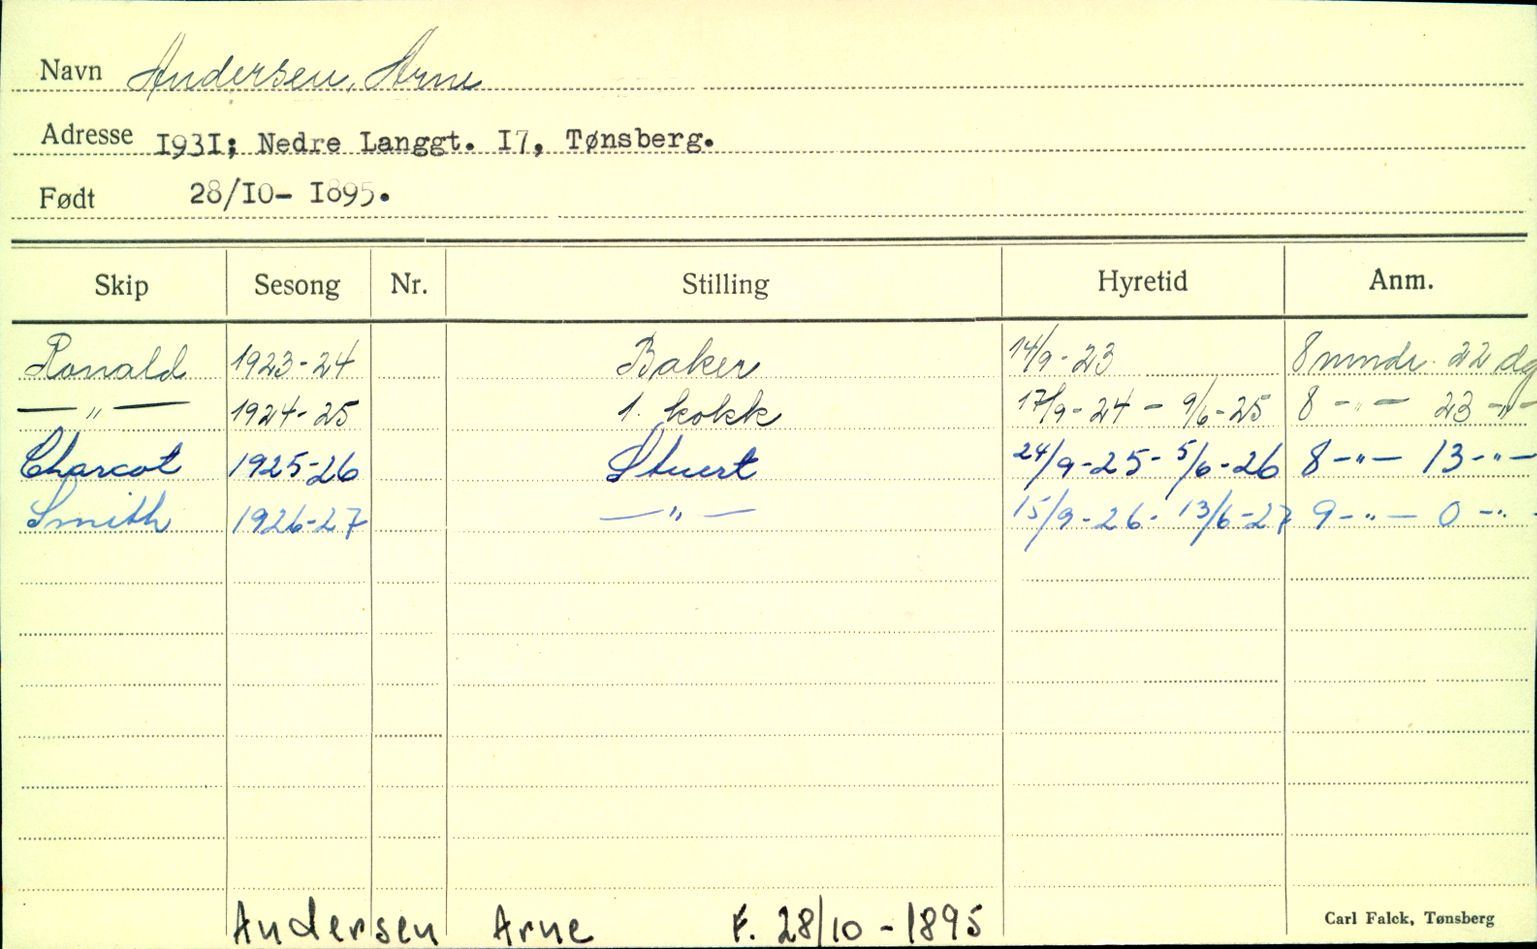 Navn Andersen, Arne
Adresse I93I; Nedre Langgt. I7, Tønsberg.
Født 28/IO- I895.
Skip Sesong Nr. Stilling Hyretid Anm.
Ronald 1923-24 Baker 14/9-23 8 mndr. 22 dg
— " — 1924-25 1. kokk 17/9-24 - 9/6-25 8 - " - 23 - " -
Charcot 1925-26 Stuert 24/9-25 - 5/6-26 8 - " - 13 - " -
Smith 1926-27 — " — 15/9-26 - 13/6-27 9 - " - 0 - " -
Andersen Arne F. 28/10 - 1895
Carl Falck, Tønsberg